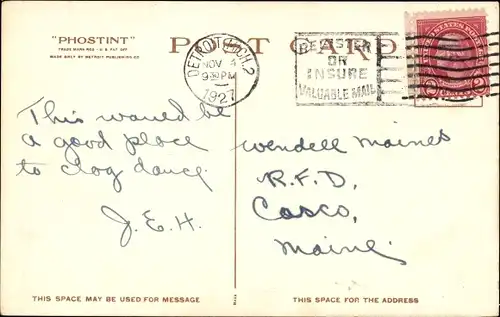 "PHOSTINT"
TRADE MARK REG. U.S. PAT. OFF.
MADE ONLY BY DETROIT PUBLISHING CO.
POST CARD
DETROIT, MICH. 2
NOV 4
9 30 PM
1927
REGISTER
OR
INSURE
VALUABLE MAIL
UNITED STATES POSTAGE
This would be
a good place
to clog dance.
J.E.H.
Wendell Maines
R.F.D.
Casco,
Maine.
THIS SPACE MAY BE USED FOR MESSAGE
THIS SPACE FOR THE ADDRESS